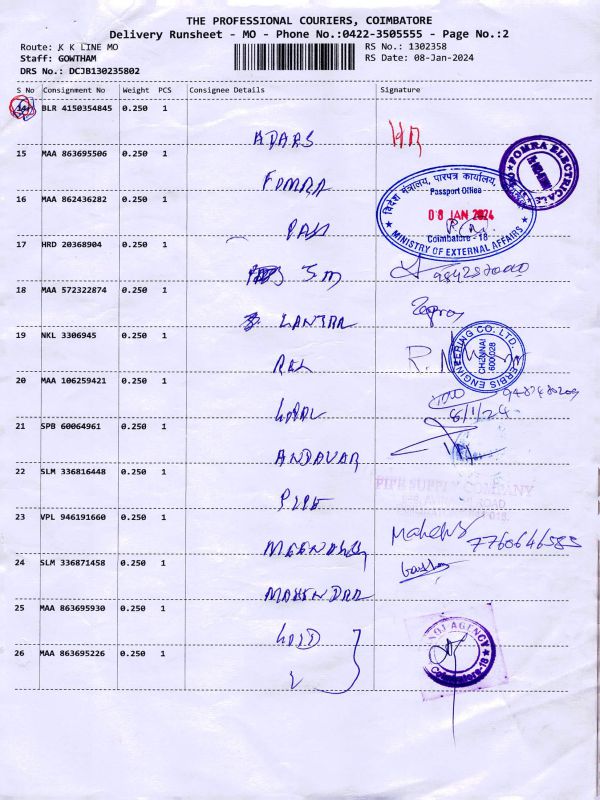 THE PROFESSIONAL COURIERS, COIMBATORE
Delivery Runsheet - MO - Phone No.:0422-3505555 - Page No.:2
Route: K K LINE MO RS No.: 1302358
Staff: GOWTHAM RS Date: 08-Jan-2024
DRS No.: DCJB130235802
S No Consignment No Weight PCS Consignee Details Signature
14 BLR 4150354845 0.250 1
ADARS
15 MAA 863695506 0.250 1
FOMRA
FOMRA ELECTRICALS
16 MAA 862436282 0.250 1
PASS
विदेश मंत्रालय, पारपत्र कार्यालय,
Passport Office
08 JAN 2024
Coimbatore - 18
MINISTRY OF EXTERNAL AFFAIRS
17 HRD 20368904 0.250 1
SM
18 MAA 572322874 0.250 1
19 NKL 3306945 0.250 1
ERBIS ENGINEERING CO. LTD.
CHENNAI
600028
20 MAA 106259421 0.250 1
GOPAL
8/1/24
21 SPB 60064961 0.250 1
ANDAVAR
22 SLM 336816448 0.250 1
PIPE
PIPE SUPPLY COMPANY
23 VPL 946191660 0.250 1
7760646583
24 SLM 336871458 0.250 1
25 MAA 863695930 0.250 1
GOLD
26 MAA 863695226 0.250 1
AGENCY
Coimbatore-18